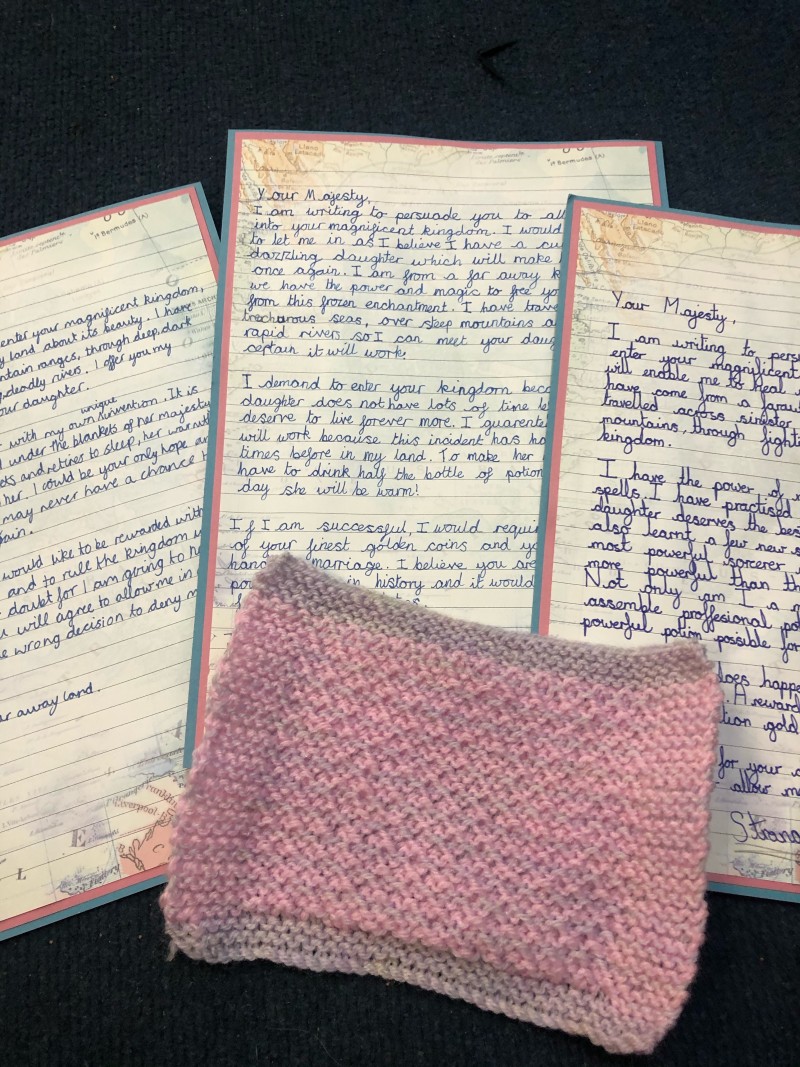 Bermudas (A)
enter your magnificent kingdom,
land about its beauty. I have
ntain ranges, through deep, dark
deadly rivers. I offer you my
our daughter.
unique
with my own invention. It is
under the blankets of her majesty
ets and retires to sleep, her warmth
her. I could be your only hope
may never have a chance
ain.
would like to be rewarded with
and to rule the kingdom
doubt for I am going to
will agree to allow me in
e wrong decision to deny
away land.
Liverpool
E
L
Llano
Estacado
Bermudas (A)
Your Majesty,
I am writing to persuade you to all
into your magnificent kingdom. I would
to let me in as I believe I have a cu
dazzling daughter which will make
once again. I am from a far away k
we have the power and magic to free yo
from this frozen enchantment. I have trave
trecharous seas, over steep mountains a
rapid rivers so I can meet your daug
certain it will work.
I demand to enter your kingdom beca
daughter does not have lots of time le
deserve to live forever more. I guarentee
will work because this incident has ha
times before in my land. To make her
have to drink half the bottle of potion
day she will be warm!
If I am successful, I would requir
of your finest golden coins and yo
hand marriage. I believe you are
po in history and it would
Your Majesty,
I am writing to pers
enter your magnificent
will enable me to heal
have come from a faraw
travelled across sinister
mountains, through fight
kingdom.
I have the power of
spells. I have practised
daughter deserves the bes
also learnt a few new s
most powerful sorcerer
more powerful than th
Not only am I a
assemble proffesional po
powerful potion possible for
does happe
A reward
tion gold
for your
allow me
Strang